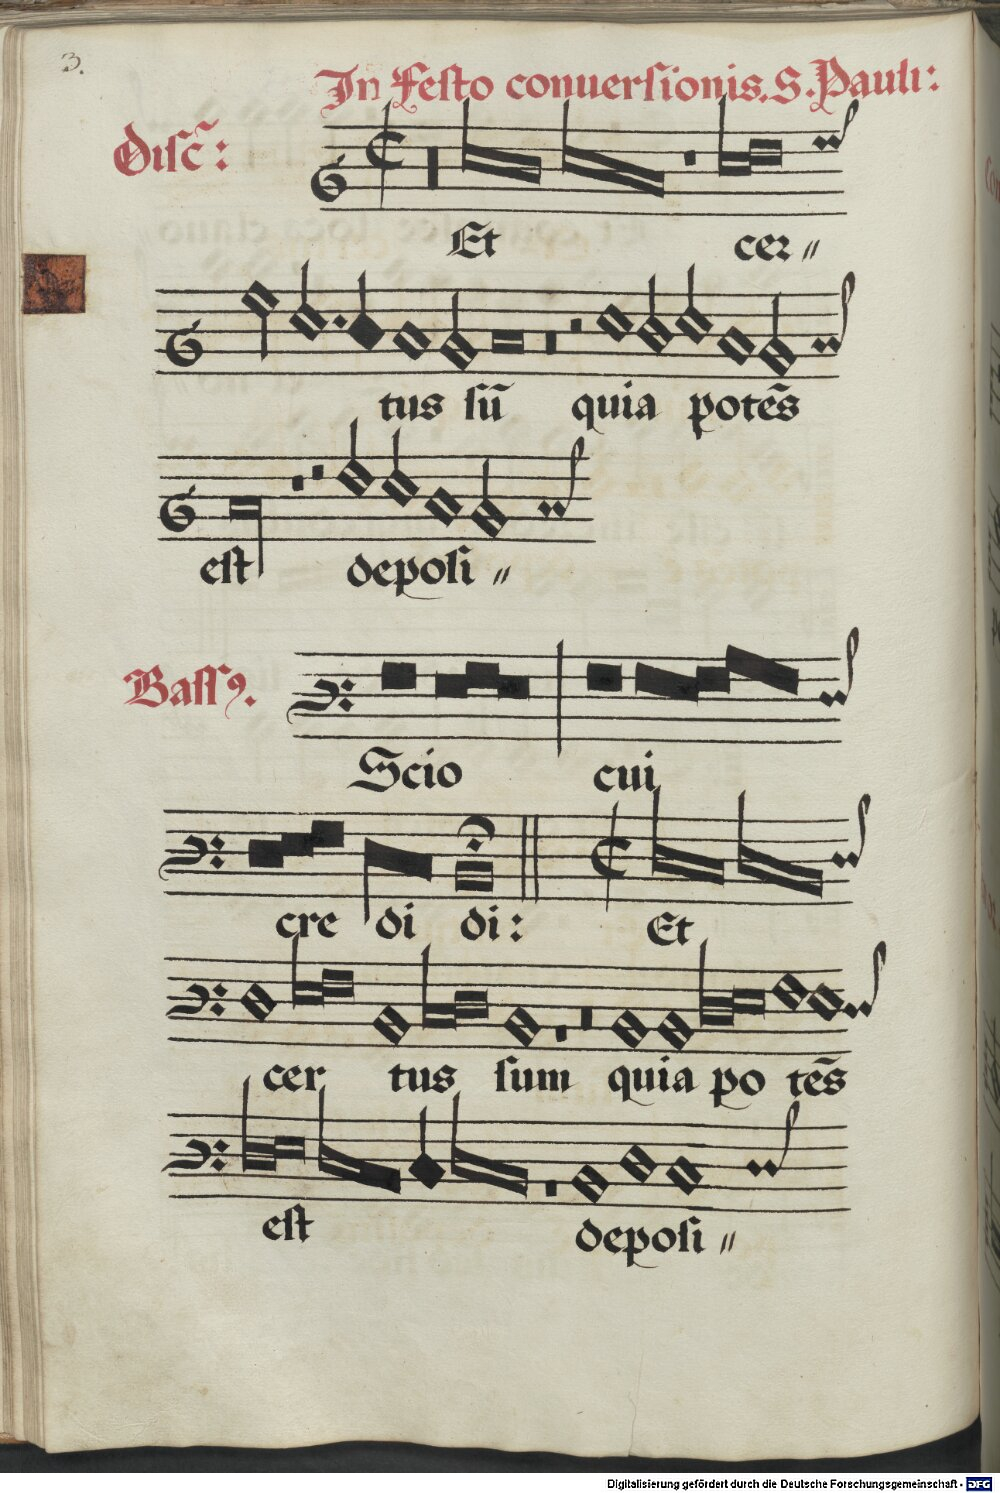 3.
In Festo conuersionis. S. Pauli:
Disc̄:
Et cer〃
tus sū quia potēs
est deposi〃
Bassꝯ.
Scio cui
cre di di: Et
cer tus sum quia po tēs
est deposi〃
Digitalisierung gefördert durch die Deutsche Forschungsgemeinschaft - DFG